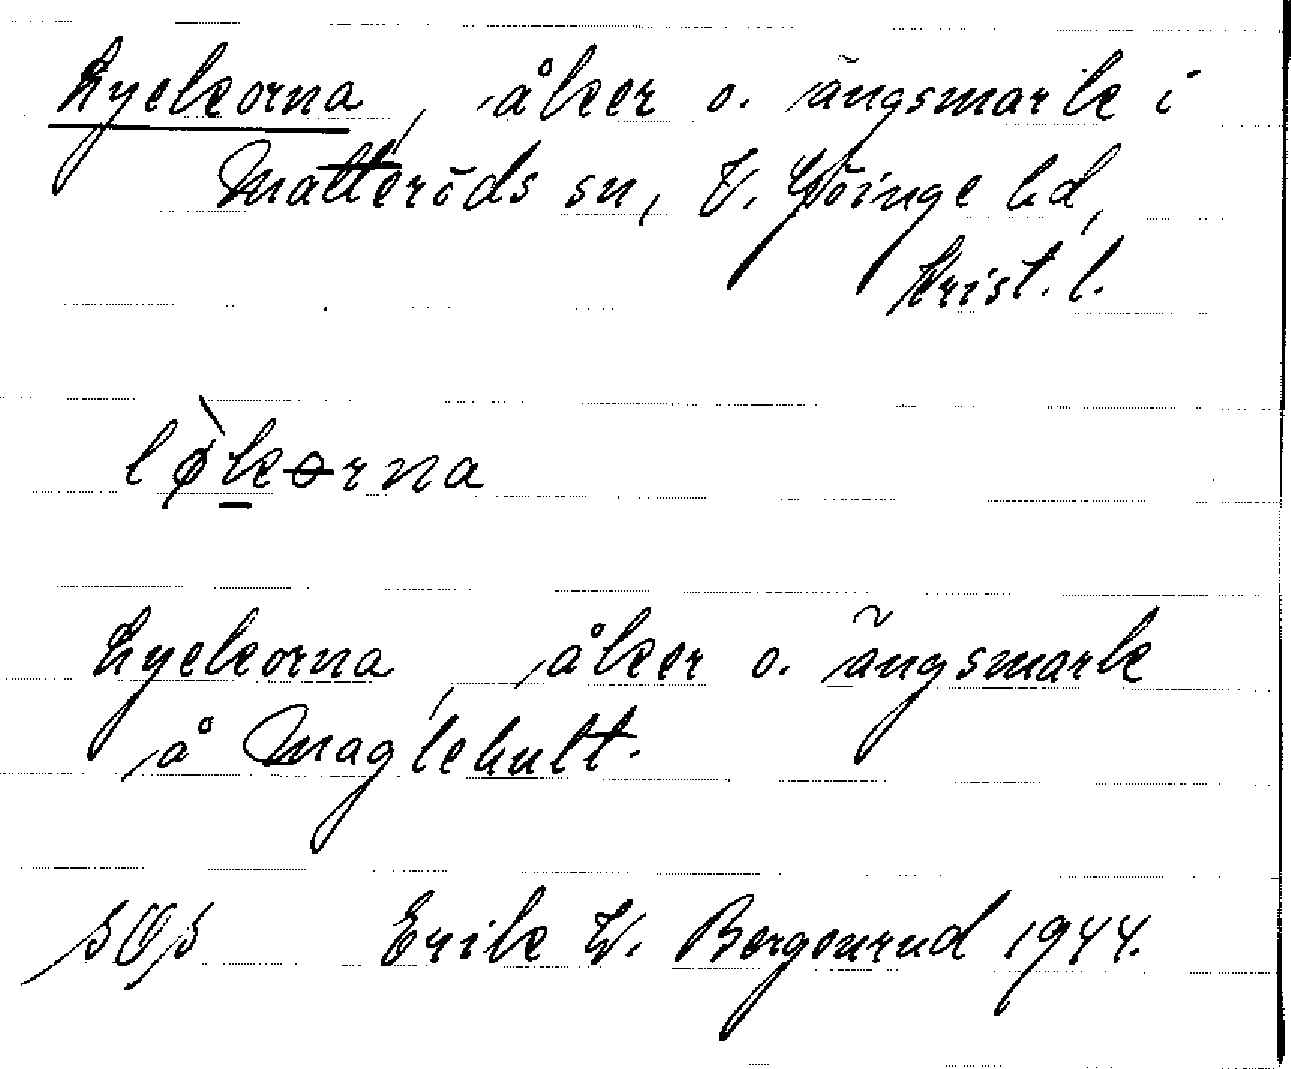 Lyckorna, åker o. ängsmark i
Matteröds sn, V. Göinge hd,
Krist. l.
lø̀korna
Lyckorna, åker o. ängsmark
å Maglehult.
Erik W. Bergenrud 1944.